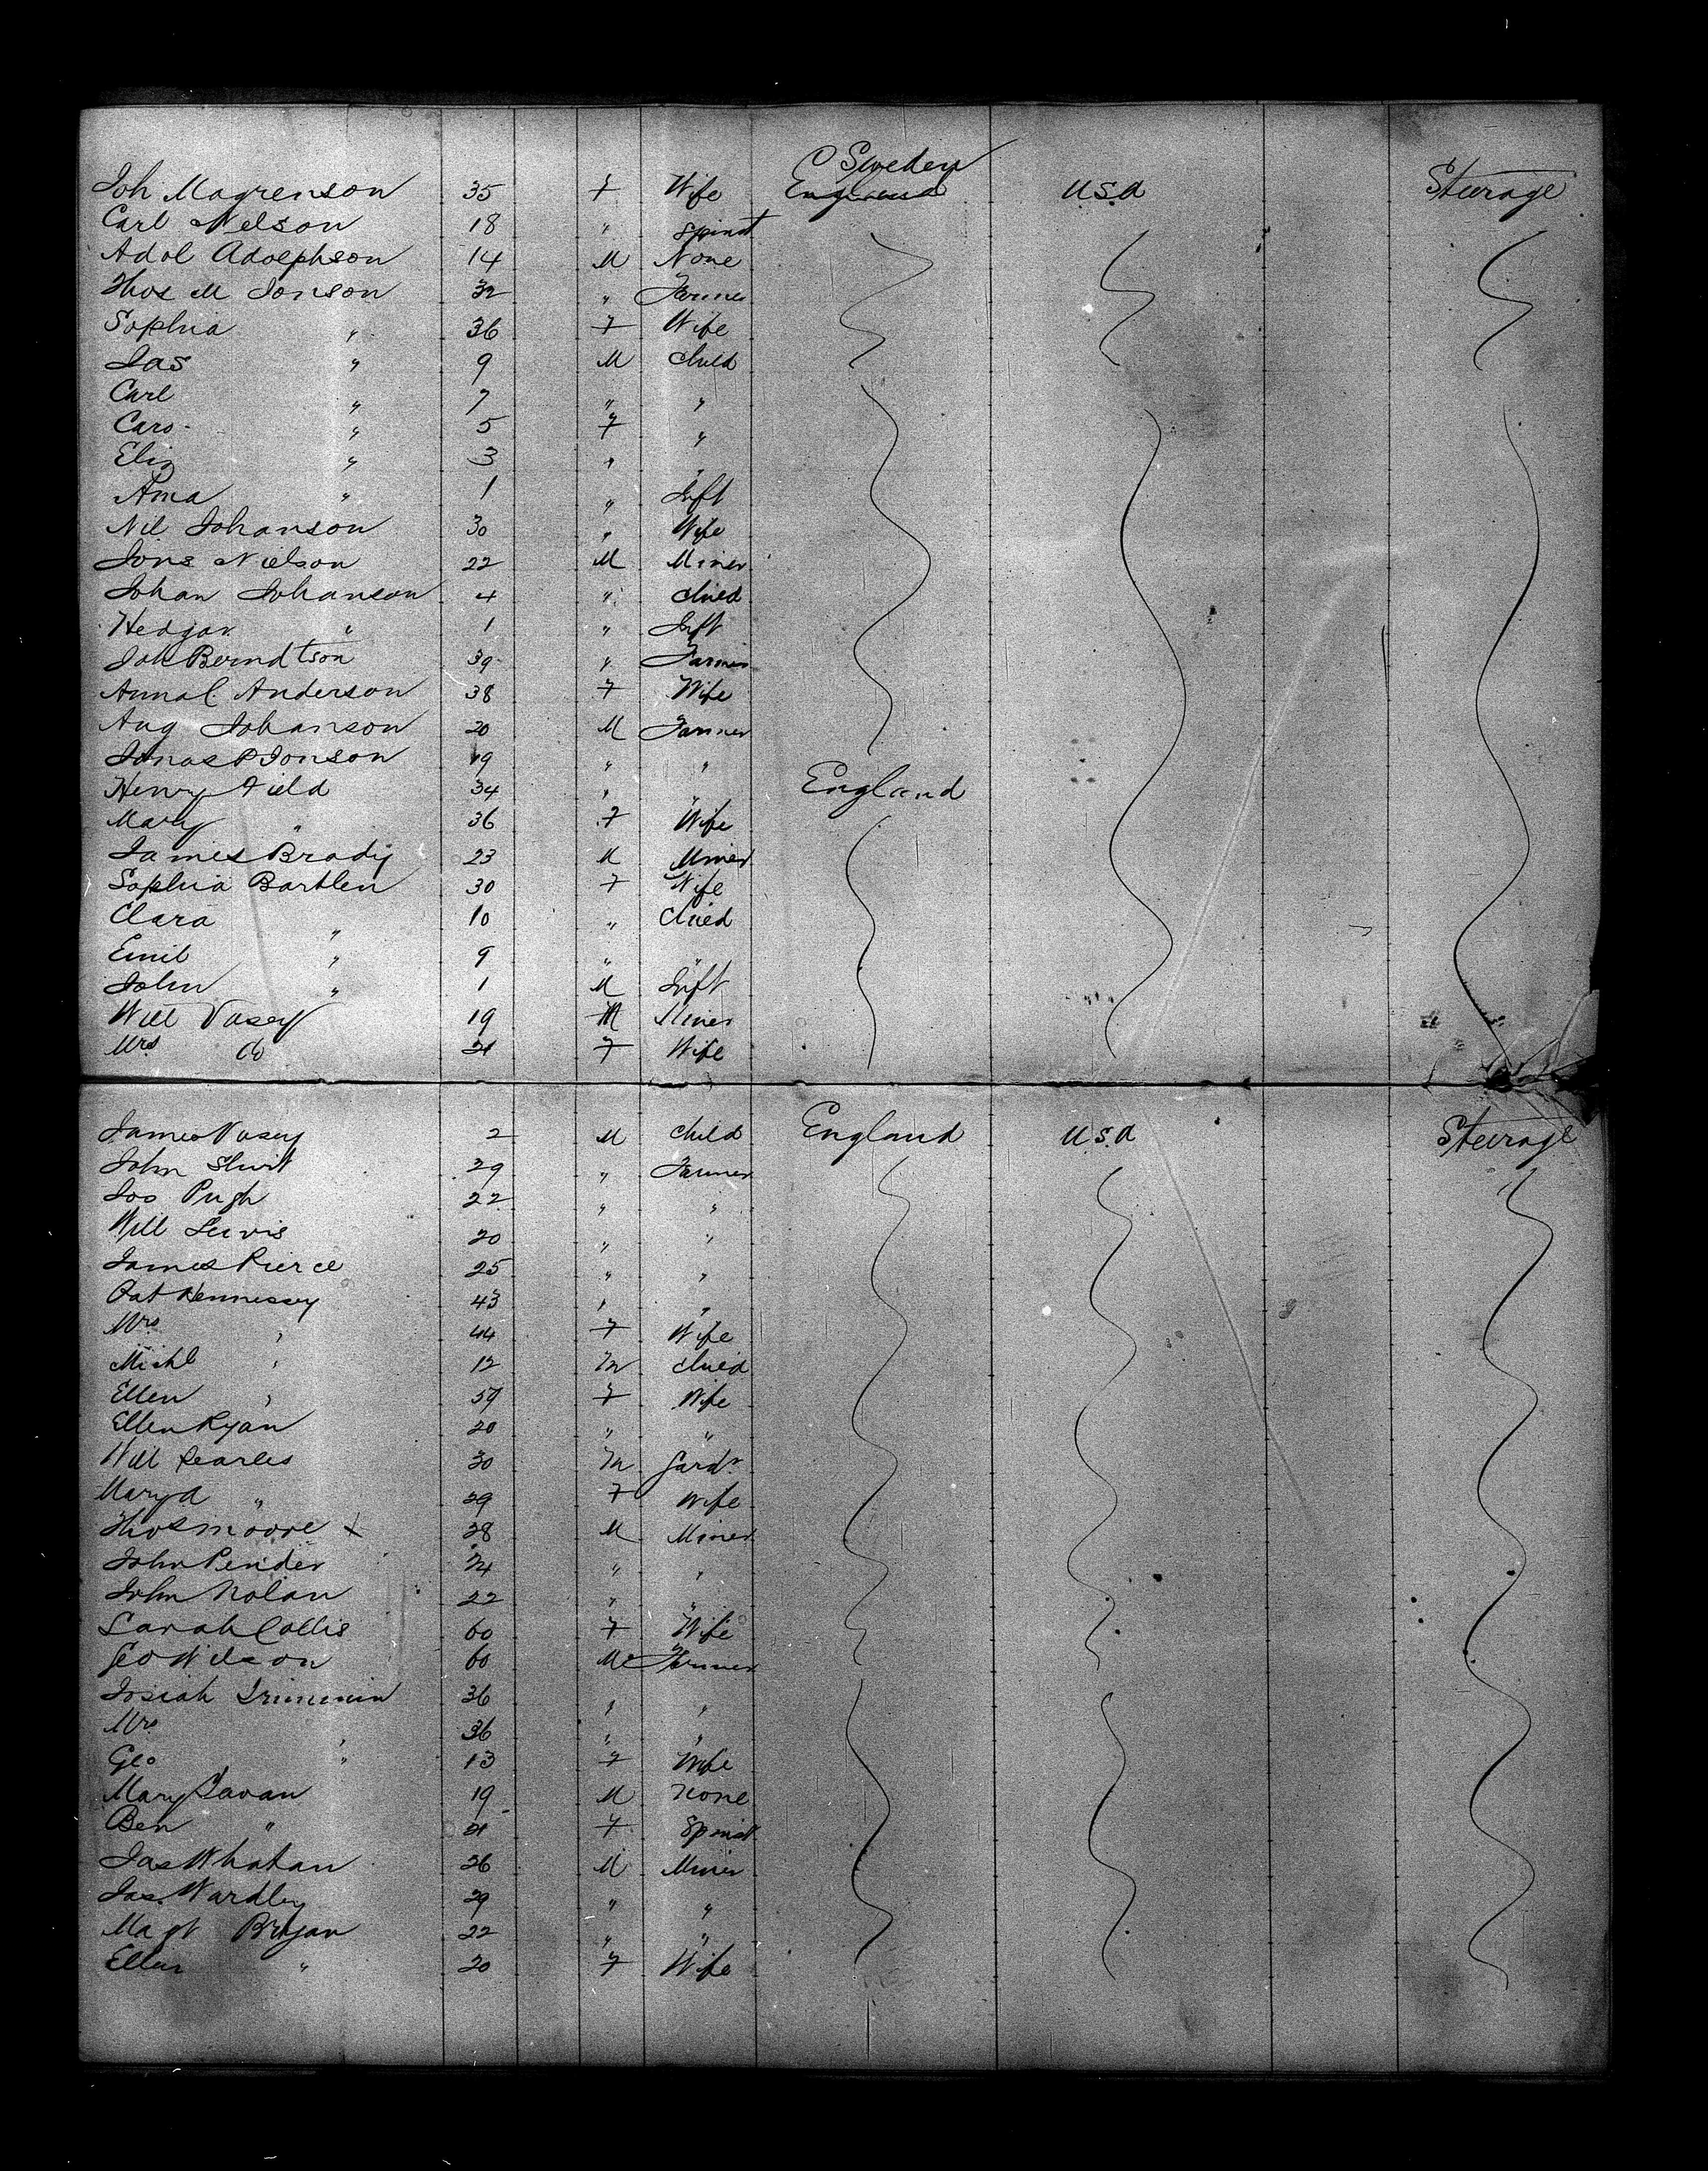 Sweden
Joh Magrenson 35 F Wife England U.S.A Steerage
Carl Nelson 18 " Spinst
Adol Adolphson 14 M None
Thos M Jonson 32 " Farmer
Sophia " 36 F Wife
Jas " 9 M Child
Carl " 7 " "
Caro. " 5 F "
Eliz " 3 " "
Ama " 1 " Inft
Nil Johanson 30 " Wife
Jons Nielson 22 M Miner
Johan Johanson 4 " Child
Hedgar " 1 " Inft
Joh Berndtson 39 " Farmer
Anna C Anderson 38 F Wife
Aug Johanson 20 M Farmer
Jonas P Jonson 19 " "
Henry Field 34 " " England
Mary " 36 F Wife
James Brady 23 M Miner
Sophia Bartlen 30 F Wife
Clara " 10 " Child
Emil " 9 " "
John " 1 M Inft
Will Vasey 19 M Miner
Mrs do 21 F Wife
James Vasey 2 M Child England U.S.A Steerage
John 29 " Farmer
Jos Pugh 22 " "
Will Lewis 20 " "
James Pierce 25 " "
Pat Hennessey 43 " "
Mrs " 44 F Wife
Michl " 12 M Child
Ellen " F Wife
Ellen Ryan 20 " "
Will Searles 30 M Gardr
Mary A " 29 F Wife
Thos Moore X 28 M Miner
John Pender 24 " "
John Nolan 22 " "
Sarah Collis 60 F Wife
Geo Wilson 60 M Farmer
Josiah 36 " "
Mrs " 36 " "
Geo " 13 F Wife
Mary Gavan 19 M None
Ben " 21 F Spinst
Jas Whatan 26 M Miner
Jas. Wardley 29 " "
Magt Bryan 22 " "
Ellen " 20 F Wife